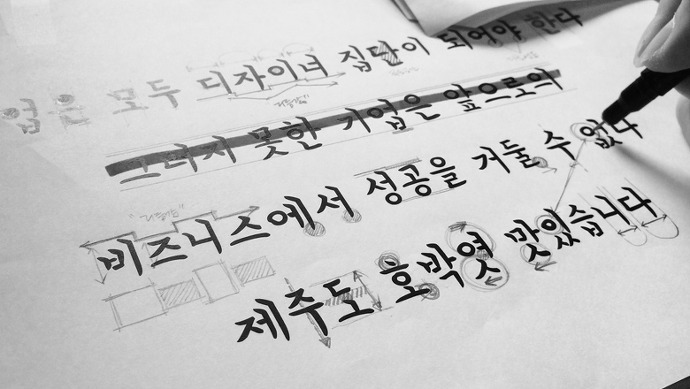 업은 모두 디자이너 집단이 되어야 한다
그러지 못한 기업은 앞으로의
비즈니스에서 성공을 거둘 수 없다
제주도 호박엿 맛있습니다